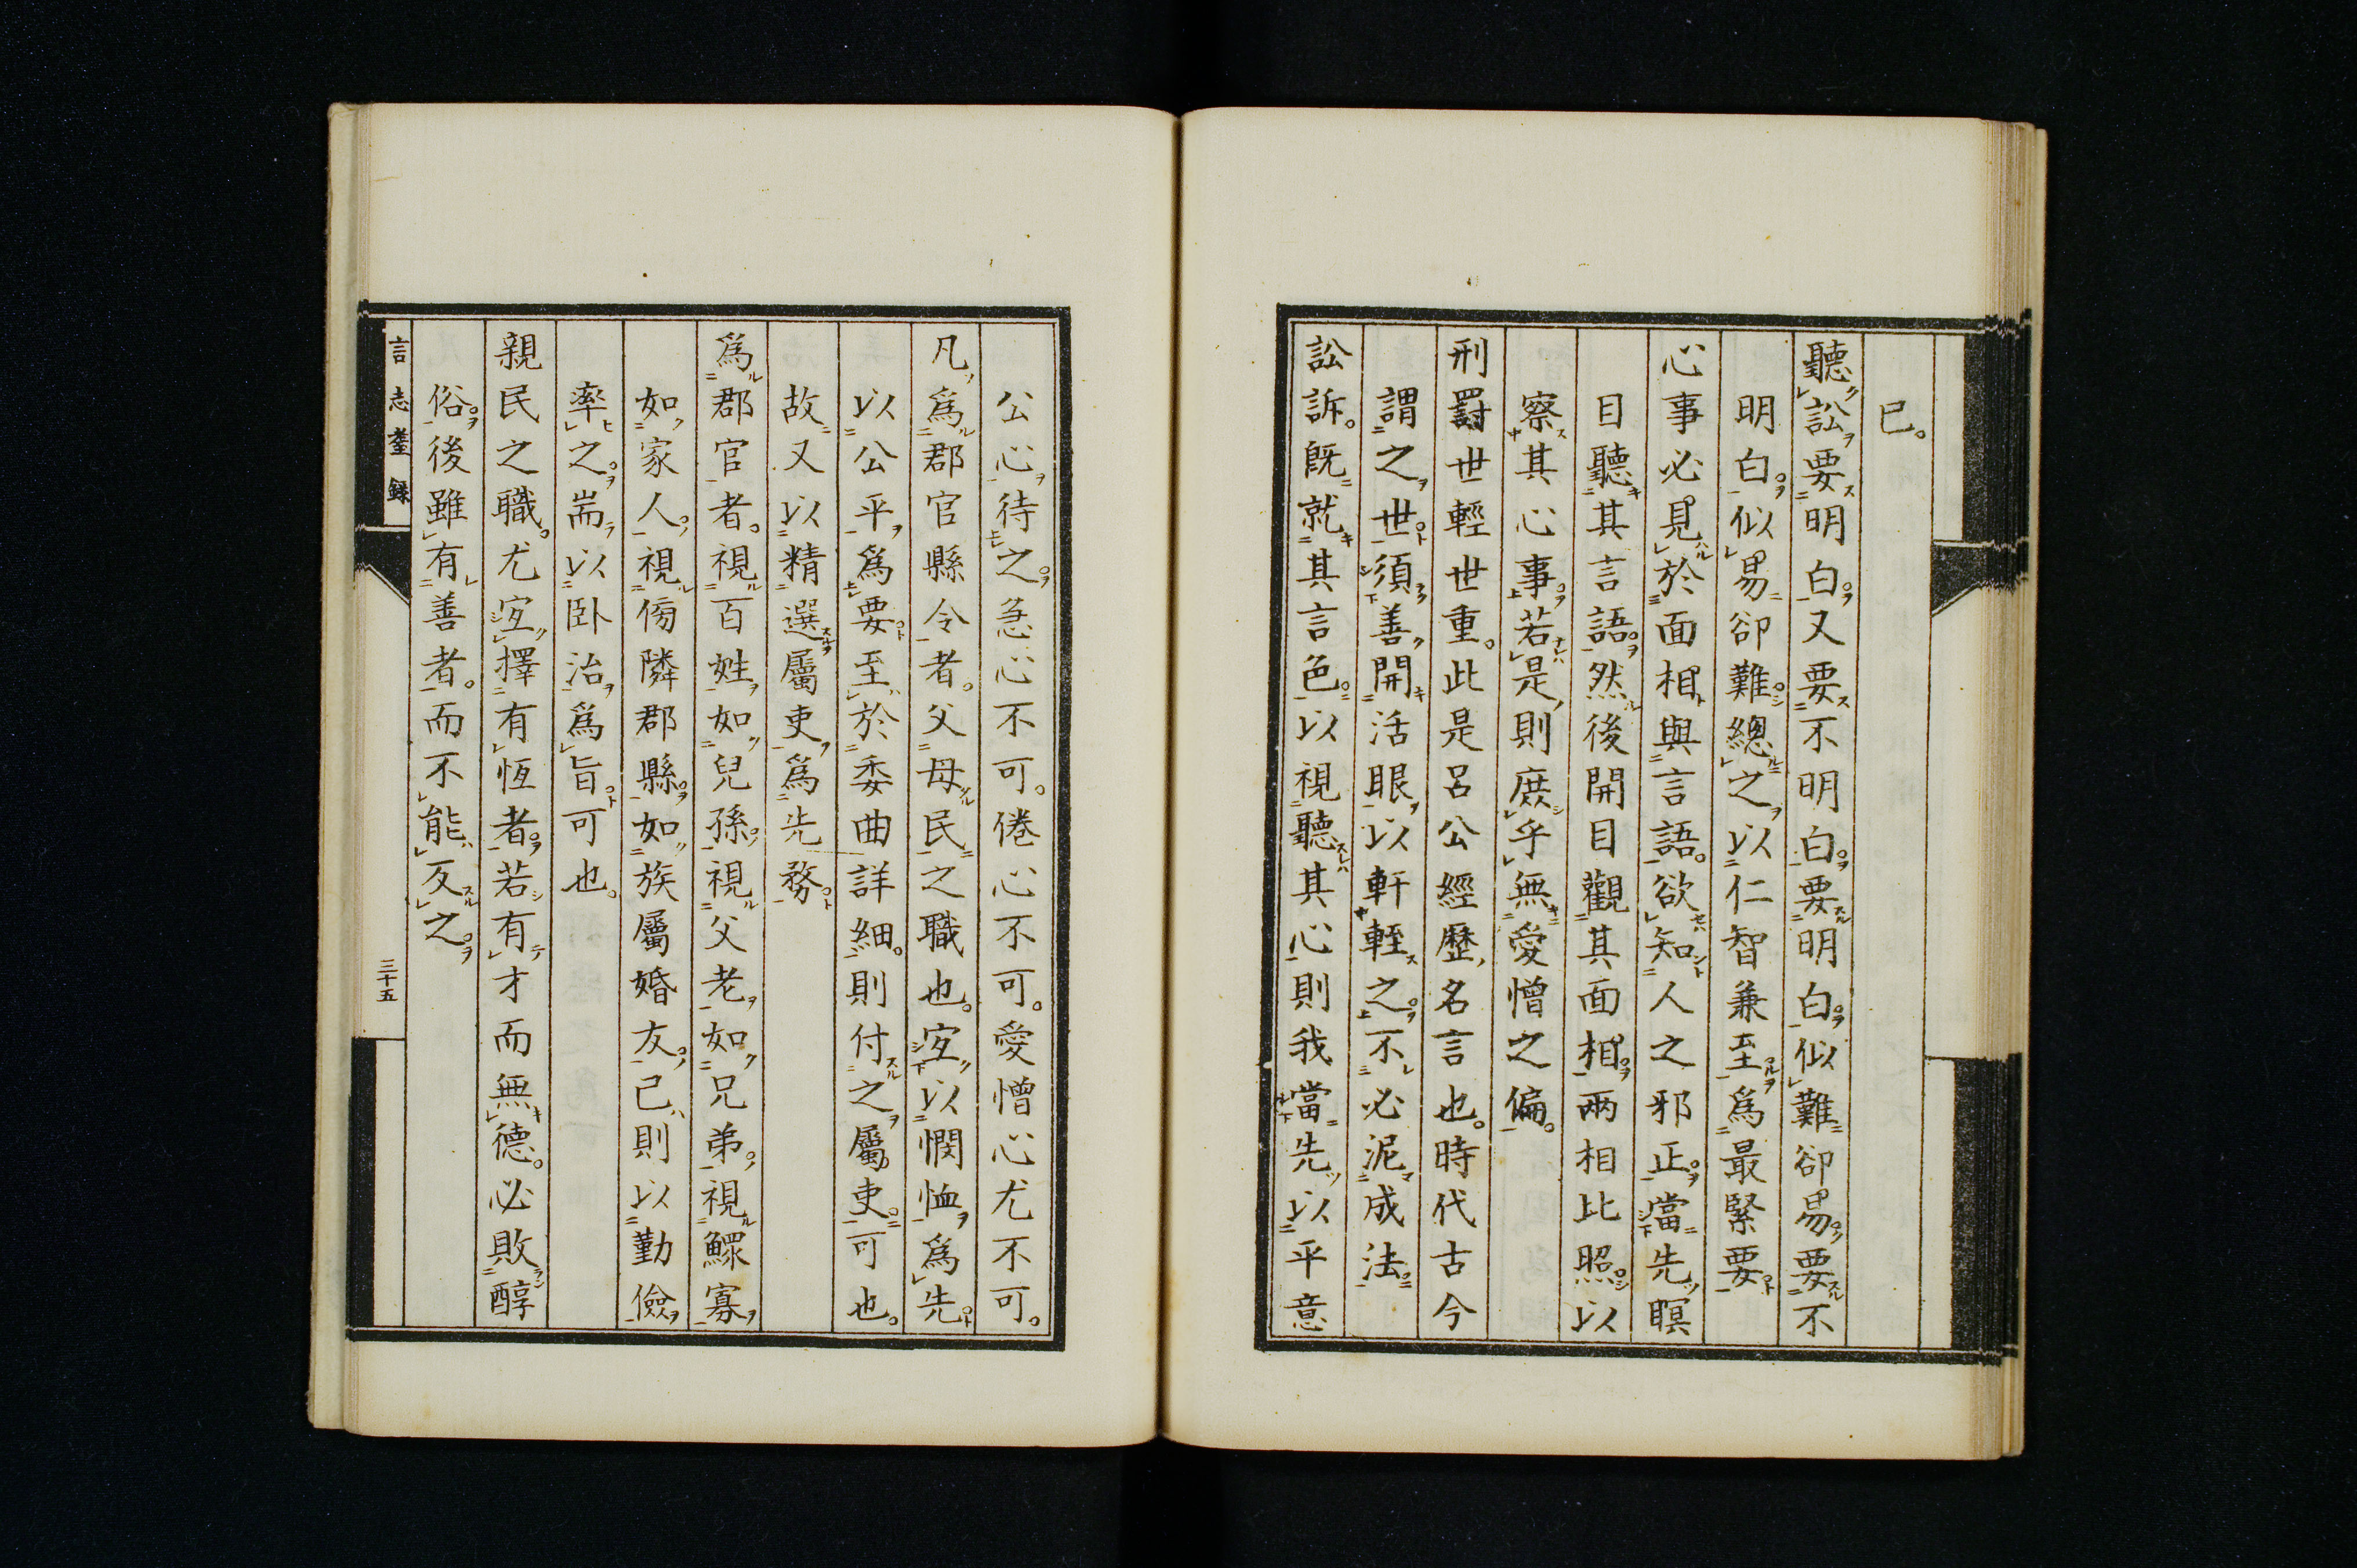 已。
聽訟要明白。又要不明白。要明白。似難卻易。要不
明白。似易卻難。總之以仁智兼至爲最緊要
心事必見於面相與言語。欲知人之邪正。當先瞑
目聽其言語。然後開目觀其面相。兩相比照。以
察其心事。若是則庶乎無愛憎之偏。
刑罰世輕世重。此是呂公經歷名言也。時代古今
謂之世。須善開活眼以軒輊之。不必泥成法。
訟訴。既就其言色。以視聽其心則我當先以平意
公心待之。急心不可。倦心不可。愛憎心尤不可。
凡爲郡官縣令者。父母民之職也。宜以憫恤爲先。
以公平爲要。至於委曲詳細。則付之屬吏。可也。
故又以精選屬吏爲先務。
爲郡官者。視百姓如兒孫。視父老如兄弟。視鰥寡
如家人。視傍隣郡縣。如族屬婚友。己則以勤儉
率之。耑以臥治爲旨。可也。
親民之職。尤宜擇有恆者。若有才而無德。必敗醇
俗。後雖有善者。而不能反之。
言志耋錄
三十五